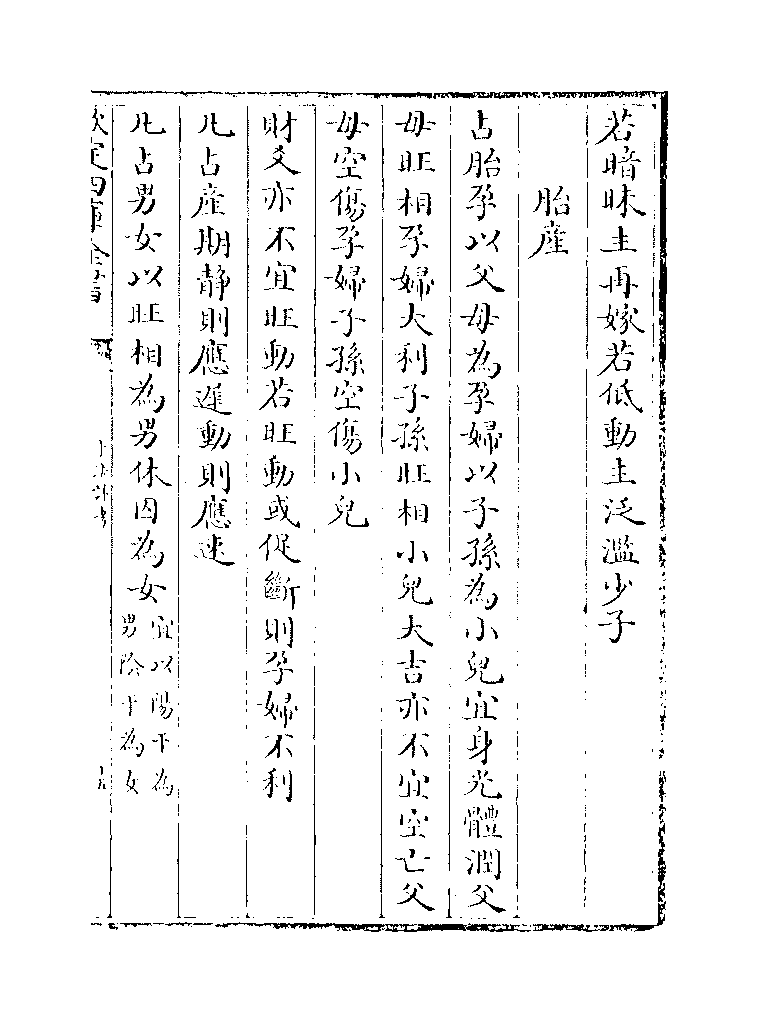 若暗昧主再嫁若低動主泛濫少子
胎產
占胎孕以父母為孕婦以子孫為小兒宜身光體潤父
母旺相孕婦大利子孫旺相小兒大吉亦不宜空亡父
母空傷孕婦子孫空傷小兒
財爻亦不宜旺動若旺動或促斷則孕婦不利
凡占產期静則應遲動則應速
凡占男女以旺相為男休囚為女宜以陽干為
男陰干為女
欽定四庫全書